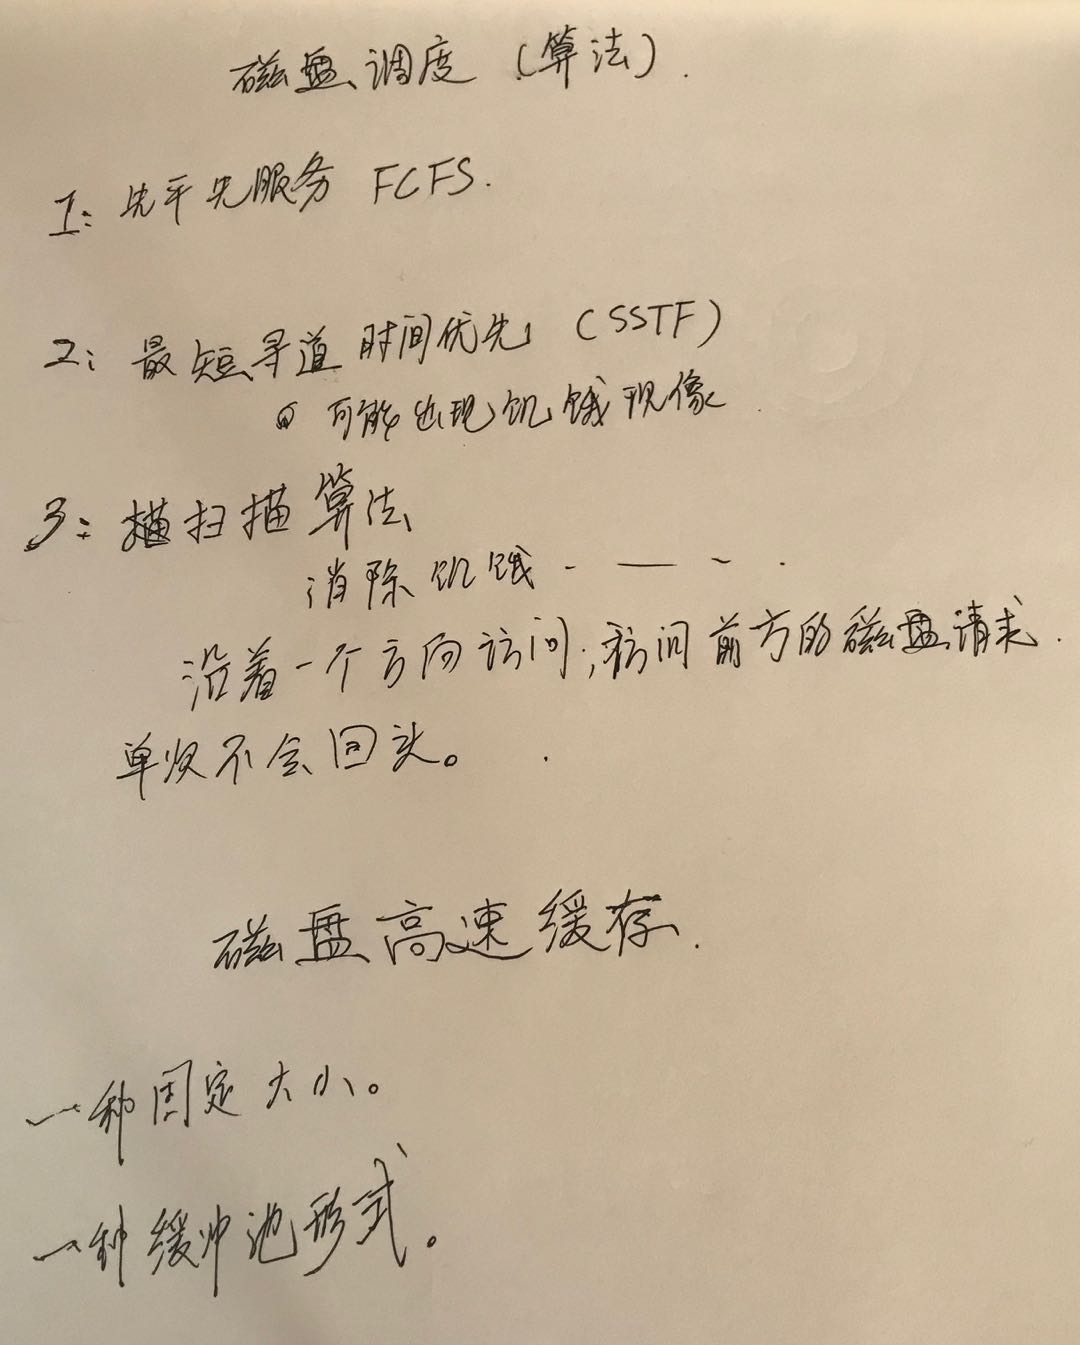 磁盘调度（算法）.
1: 先来先服务 FCFS.
2: 最短寻道时间优先（SSTF）
可能出现饥饿现像
3: 扫描算法
消除饥饿 - — - .
沿着一个方向访问,访问前方的磁盘请求.
单次不会回头。.
磁盘高速缓存.
一种固定大小。
一种缓冲池形式。